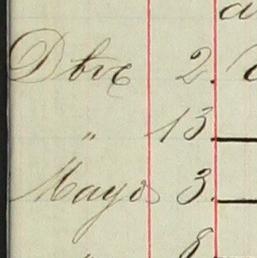 Dbre 2.
" 13
Mayo 3.
" 8